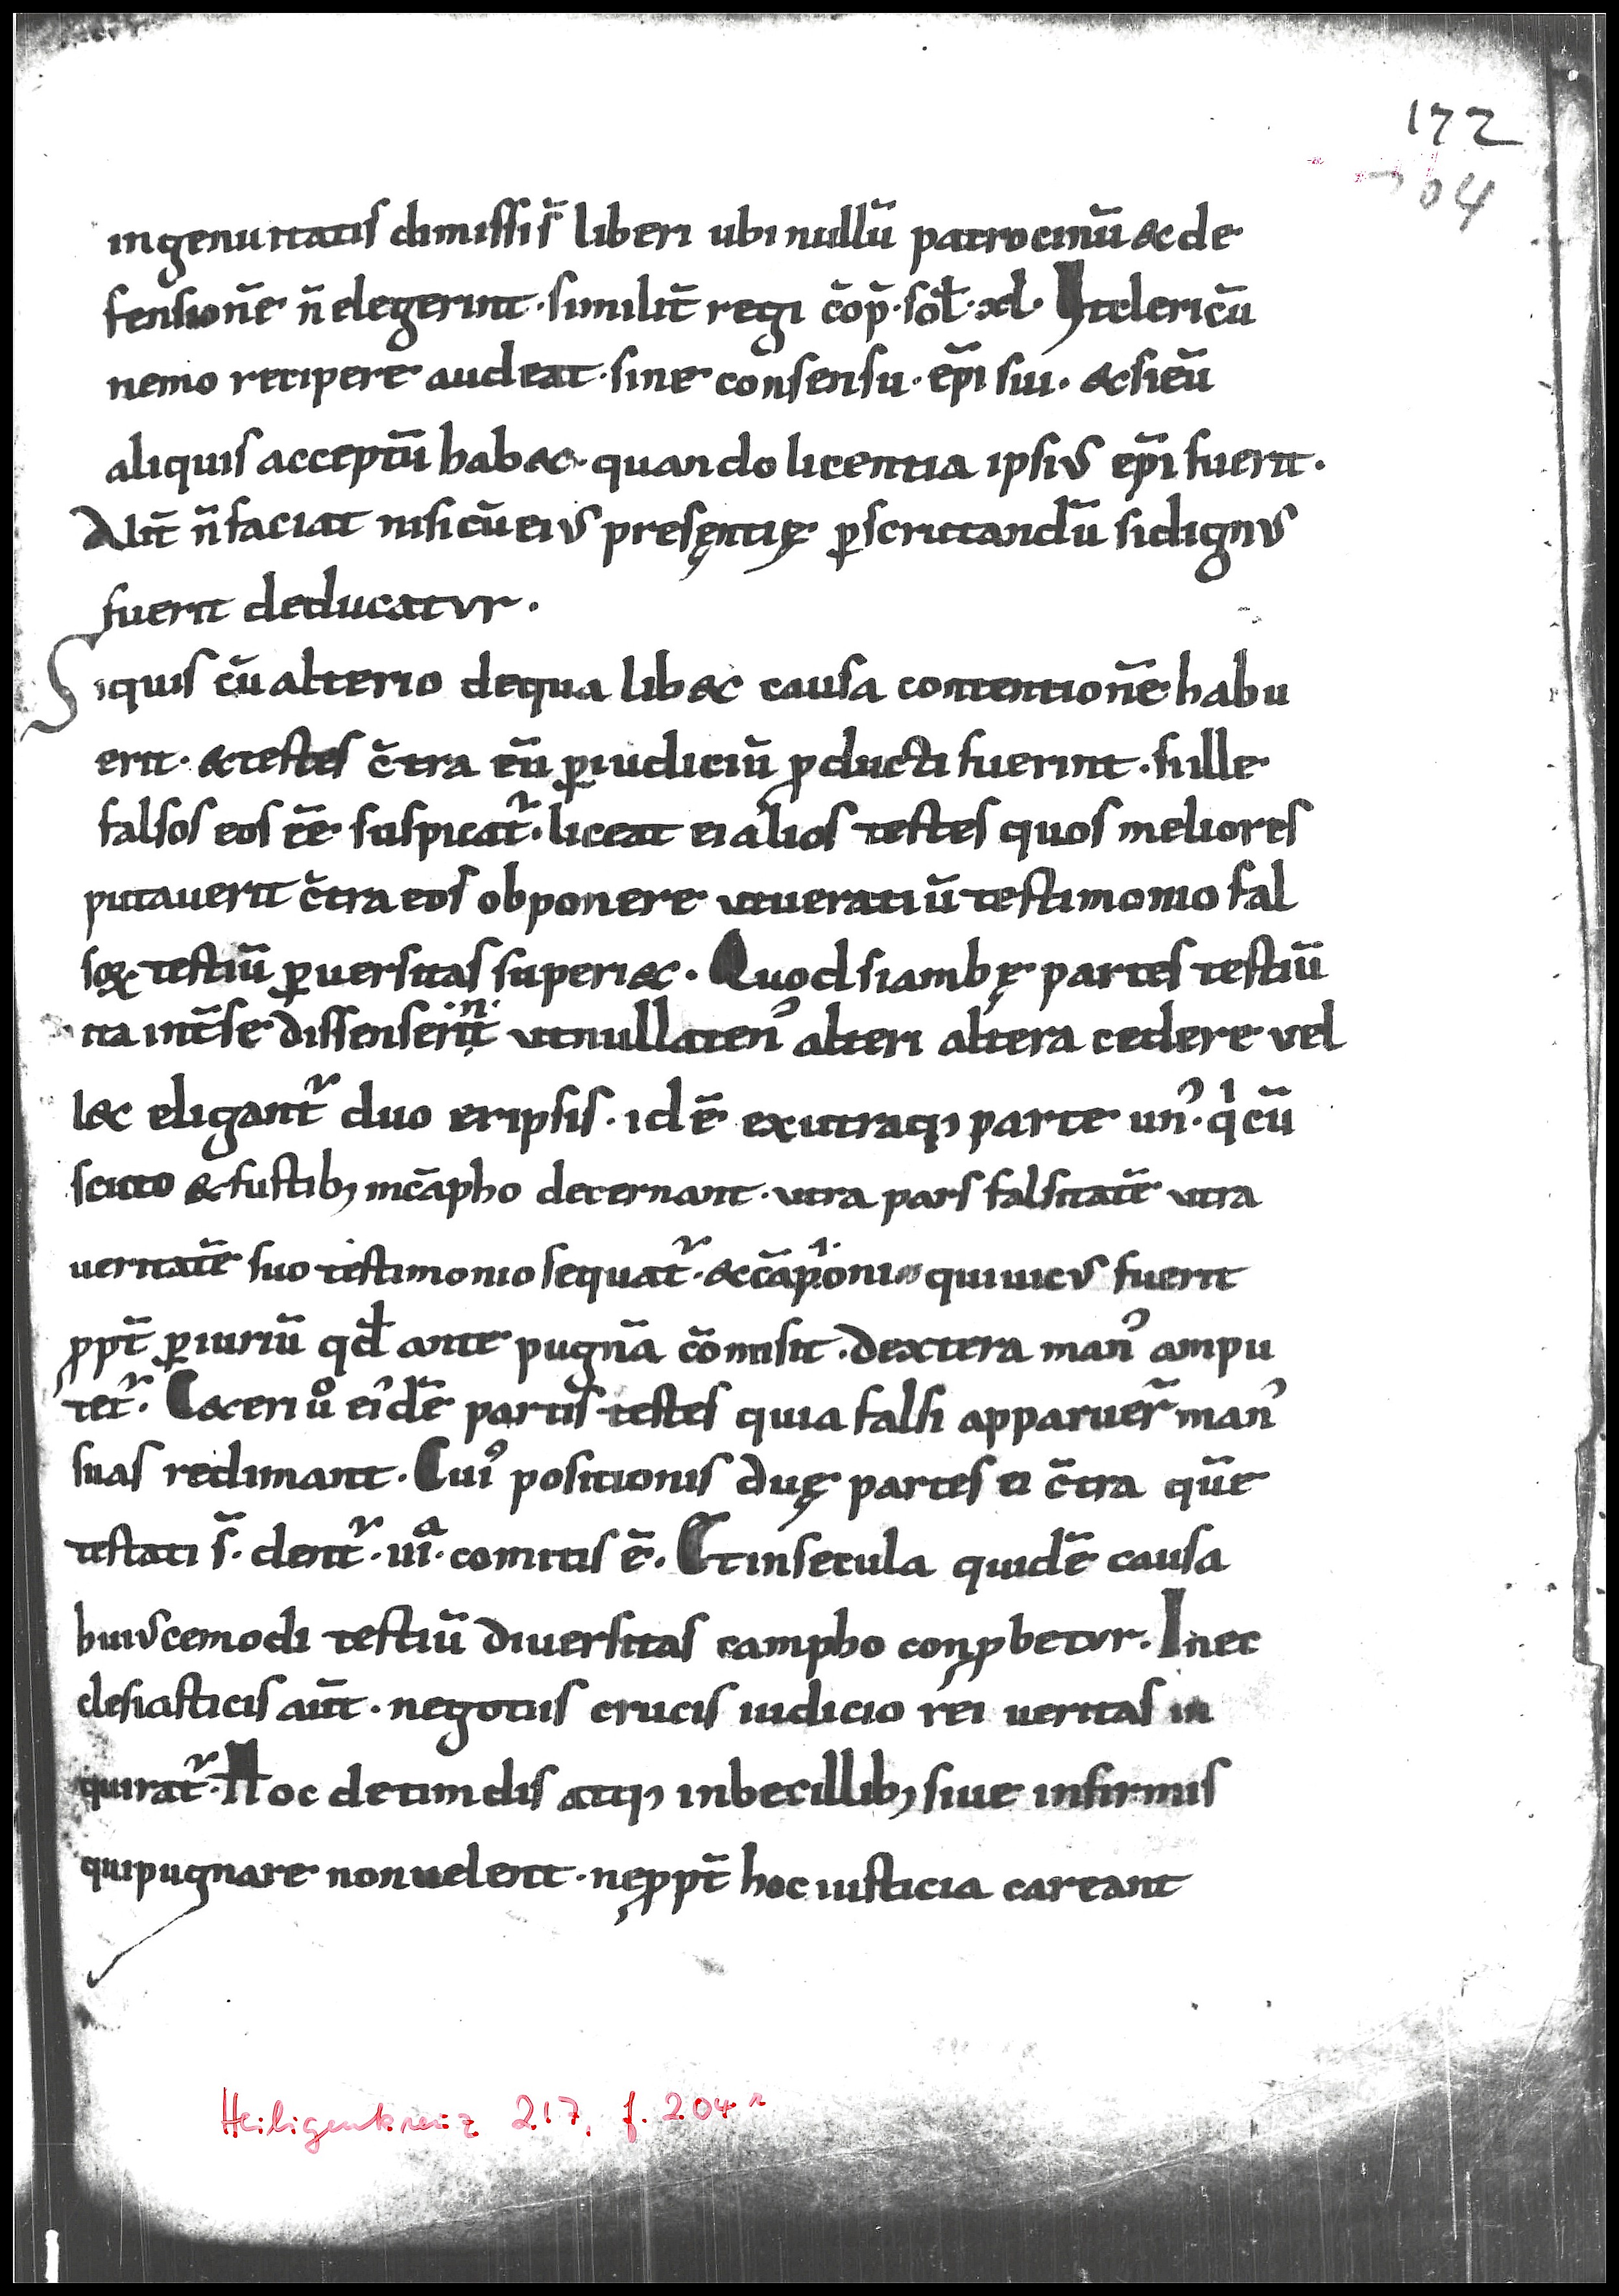 172
204
ingenuitatis dimissi s̄ liberi ubi nullū patrociniū &de
fensionē n̄ elegerint · similit̄ regi c̄op̄ · sol̄ · xl · Ut clericū
nemo recipere audeat · sine consensu · ep̄i sui · &si eū
aliquis acceptū hab& · quando licentia ipsius ep̄i fuerit ·
Alit̄ n̄ faciat nisi cū eius presentię ꝑscrutandū si dignus
fuerit deducatur ·
Siquis cū alterio de qua lib& causa contentionē habu
erit · & testes c̄tra eū ꝑ iudiciū ꝓducti fuerint · si ille
falsos eos eē suspicat̄ · liceat ei alios testes quos meliores
putauerit c̄tra eos obponere ut ueratiū testimonio fal
soꝝ testiū ꝑuersitas superi& · Quod si ambę partes testiū
ita int̄ se dissenserint ut nullaten᾽ alteri altera cedere uel
l& eligant̄ duo er ipsis · id ē ex utraq; parte un᾽ · q̇ cū
scuto & fustib; in c̄apho decernant · utra pars falsitatē utra
ueritatē suo testimonio sequat̄ · & cāp̄ioni qui uicus fuerit
ꝓpt̄ ꝑiuriū qd̄ ante pugnā cōmisit · dextera man᾽ ampu
tet̄ · C&eri ů ei᾽dē partis testes quia falsi apparuer̄ man᾽
suas redimant · Cui᾽ positionis duę partes ei c̄tra quē
testati s̄ · dent̄ · iiia · comitis ē · Et in secula quidē causa
huiuscemodi testiū diuersitas campho conꝓbetur · In ec
clesiasticis aūt · negotiis crucis iudicio rei ueritas in
quirat̄ · Hoc de timidis atq; inbecillib; siue infirmis
qui pugnare non ualent · ne ꝓpt̄ hoc iusticia careant
Heiligenkreuz 217, f. 204r